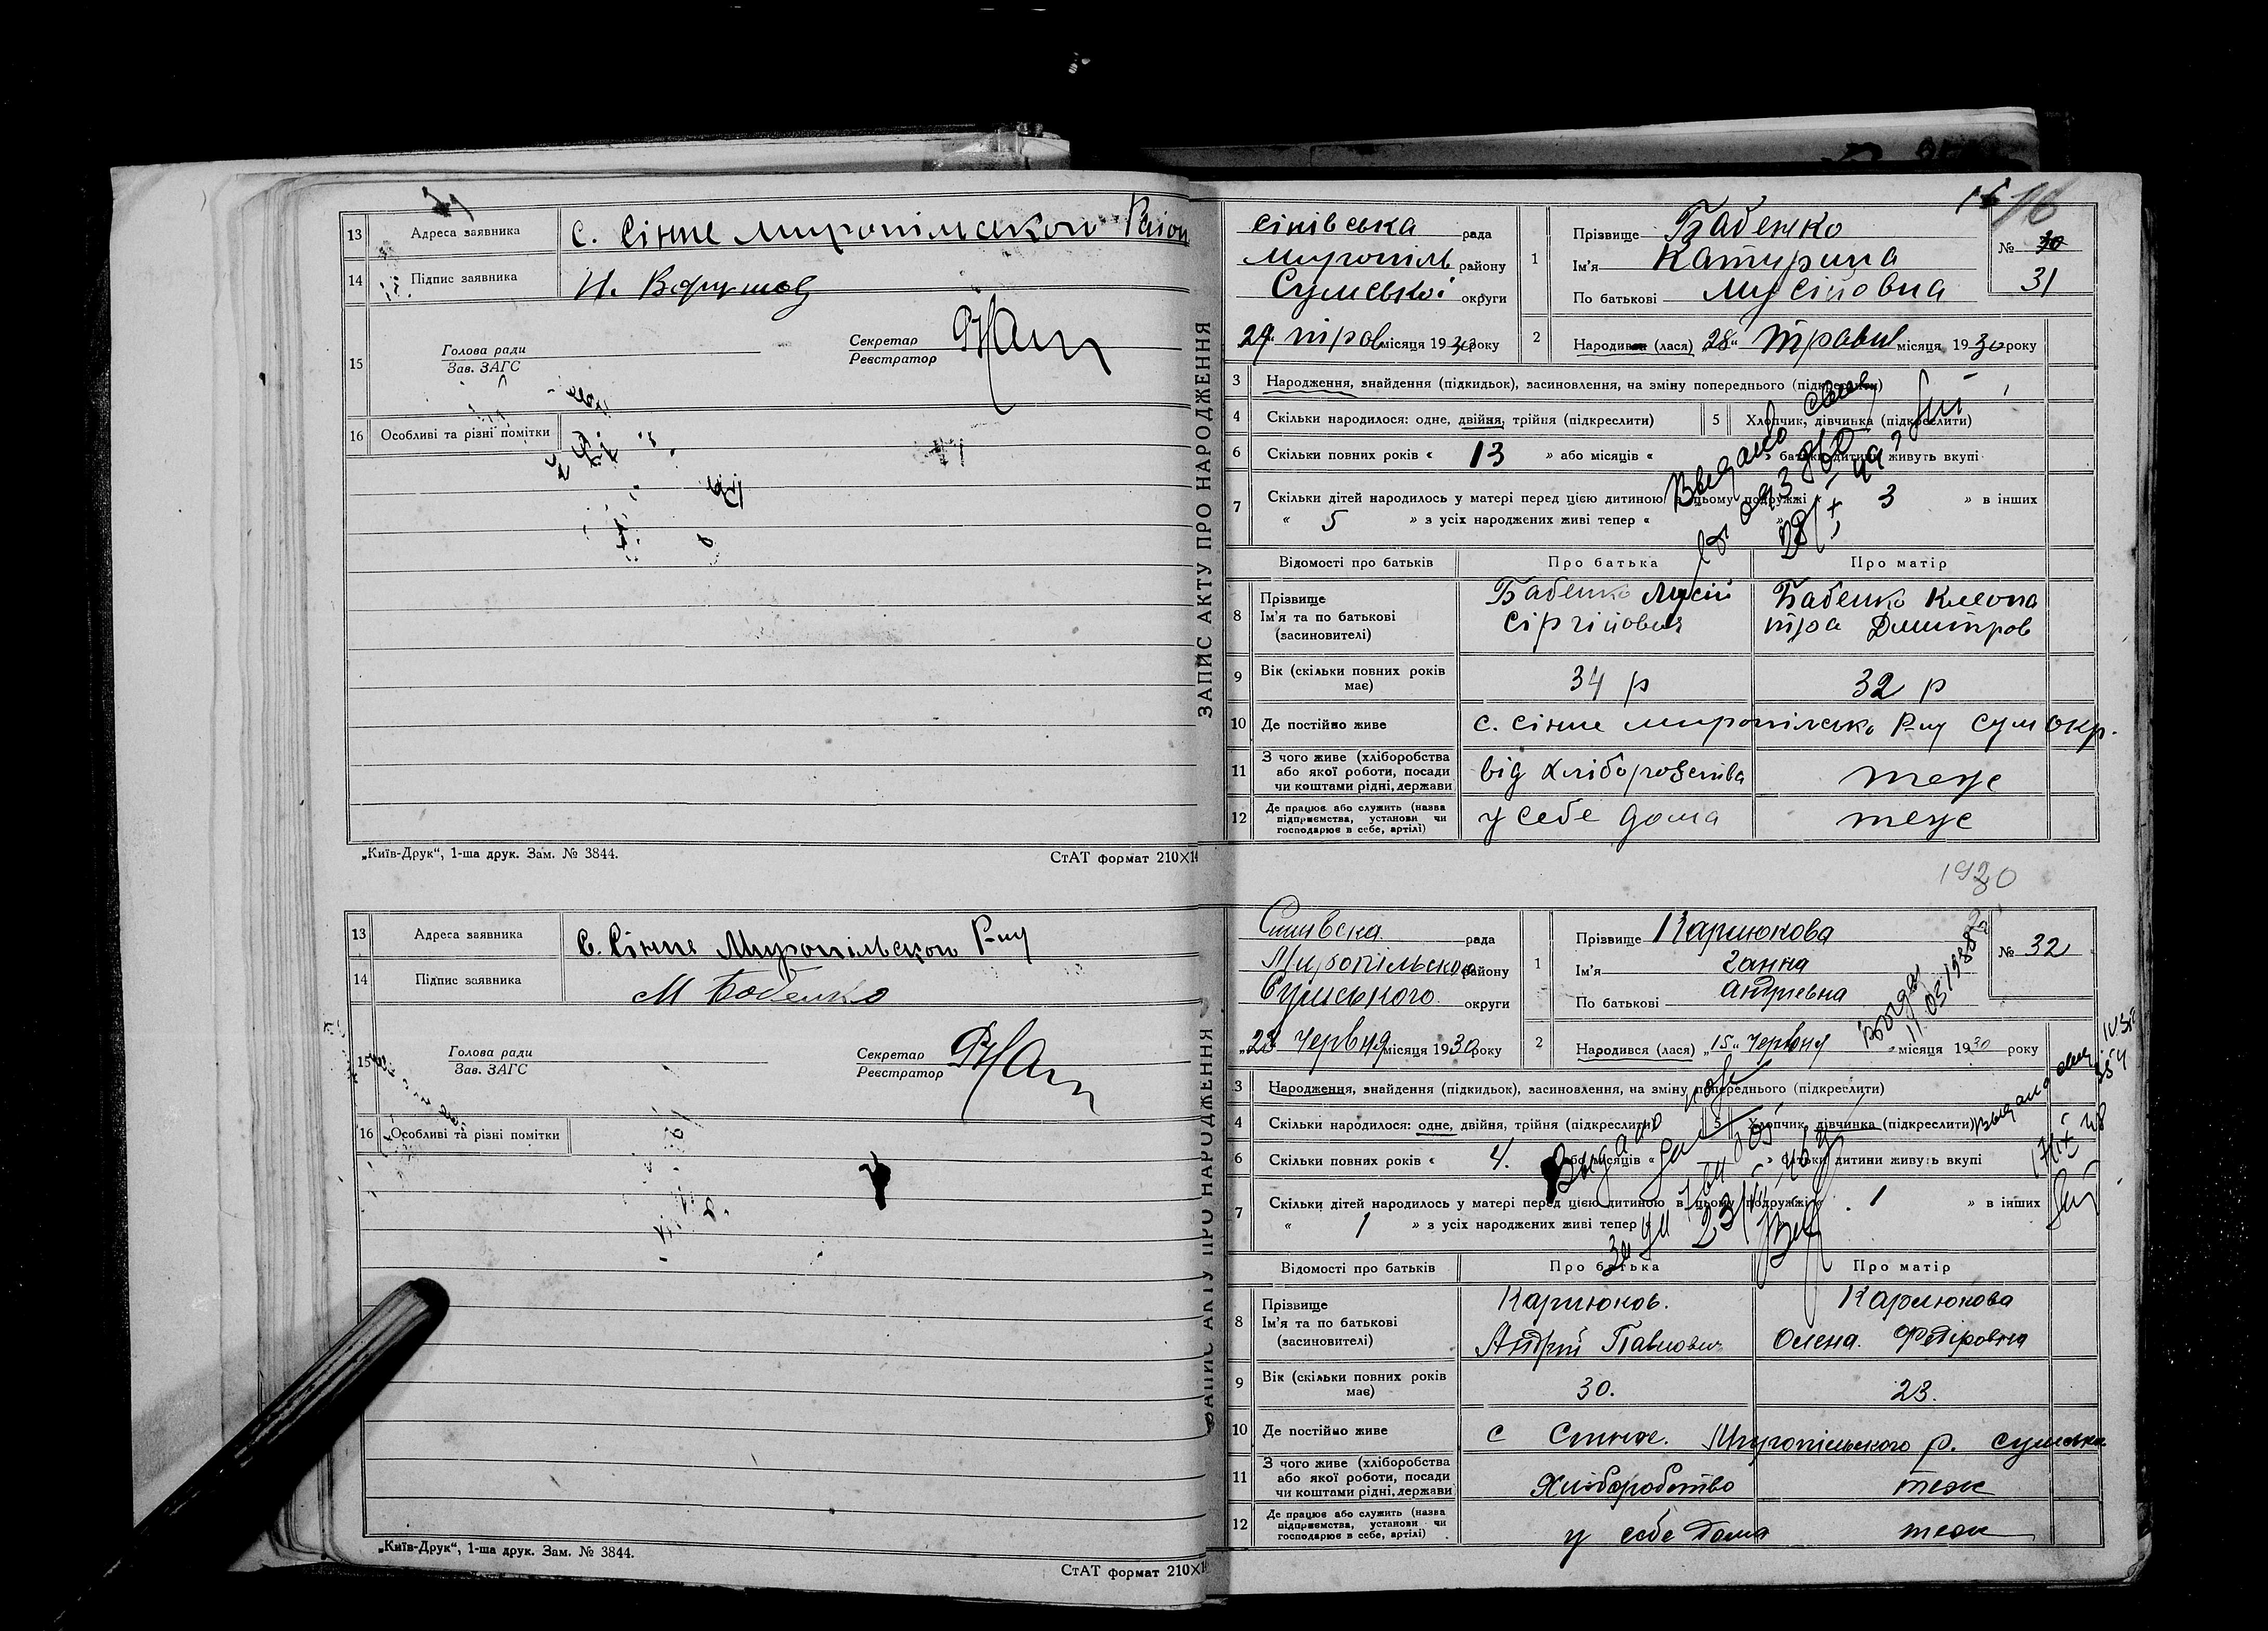 13 Адреса заявника с. Сінне Миропільсько Район
14 Підпис заявника
15 Голова ради
Зав. ЗАГС
Секретар
Реєстратор
16 Особливі та різні помітки
„Київ-Друк“, 1-ша друк. Зам. № 3844.
СтАТ формат 210×14
13 Адреса заявника С. Сінне Миропільского Р-ну
14 Підпис заявника М Бабенко
15 Голова ради
Зав. ЗАГС
Секретар
Реєстратор
16 Особливі та різні помітки
„Київ-Друк“, 1-ша друк. Зам. № 3844.
СтАТ формат 210×1
ЗАПИС АКТУ ПРО НАРОДЖЕННЯ
16
Сінівська рада
Миропіль району
Сумської округи
29 трав місяця 1930 року
1 Прізвище Бабенко
Ім'я Катирина
По батькові Мусіївна
№ 30
31
2 Народився (лася) „28“ травня місяця 1930 року
3 Народження, знайдення (підкидьок), засиновлення, на зміну попереднього (підкреслити)
4 Скільки народилося: одне, двійня, трійня (підкреслити)
5 Хлопчик, дівчинка (підкреслити)
6 Скільки повних років « 13 » або місяців « » батьки дитини живуть вкупі
7 Скільки дітей народилось у матері перед цією дитиною в цьому подружжі « 3 » в інших
« 5 » з усіх народжених живі тепер «
Видано
Відомості про батьків Про батька Про матір
8 Прізвище
Ім'я та по батькові
(засиновителі)
Бабенко Мусій
Сіргійович
Бабенко Клеопа
тра Дмитров
9 Вік (скільки повних років має) 34 р 32 р
10 Де постійно живе с. Сінне миропілсько Р-ну Сум Окр.
11 З чого живе (хліборобства
або якої роботи, посади
чи коштами рідні, держави
від хліборобства теж
12 Де працює або служить (назва
підприємства, установи чи
господарює в себе, артілі)
у себе дома теж
1930
ЗАПИС АКТУ ПРО НАРОДЖЕННЯ
Синивска рада
Миропільского району
Сумського округи
„23 Червня місяця 1930 року
1 Прізвище Карпюкова
Ім'я Ганна
По батькові Андриевна
№ 32
2 Народився (лася) „15“ Червня місяця 1930 року
3 Народження, знайдення (підкидьок), засиновлення, на зміну попереднього (підкреслити)
4 Скільки народилося: одне, двійня, трійня (підкреслити)
5 Хлопчик, дівчинка (підкреслити)
6 Скільки повних років « 4. » або місяців « » батьки дитини живуть вкупі
7 Скільки дітей народилось у матері перед цією дитиною в цьому подружжі « 1 » в інших
« 1 » з усіх народжених живі тепер
Видано
Відомості про батьків Про батька Про матір
8 Прізвище
Ім'я та по батькові
(засиновителі)
Карпюков.
Андрій Павлович
Карпюкова
Олена.
9 Вік (скільки повних років має) 30. 23.
10 Де постійно живе с Синне. Миропільского р. Сумська
11 З чого живе (хліборобства
або якої роботи, посади
чи коштами рідні, держави
Хліборобство теж
12 Де працює або служить (назва
підприємства, установи чи
господарює в себе, артілі)
у себе дома теж